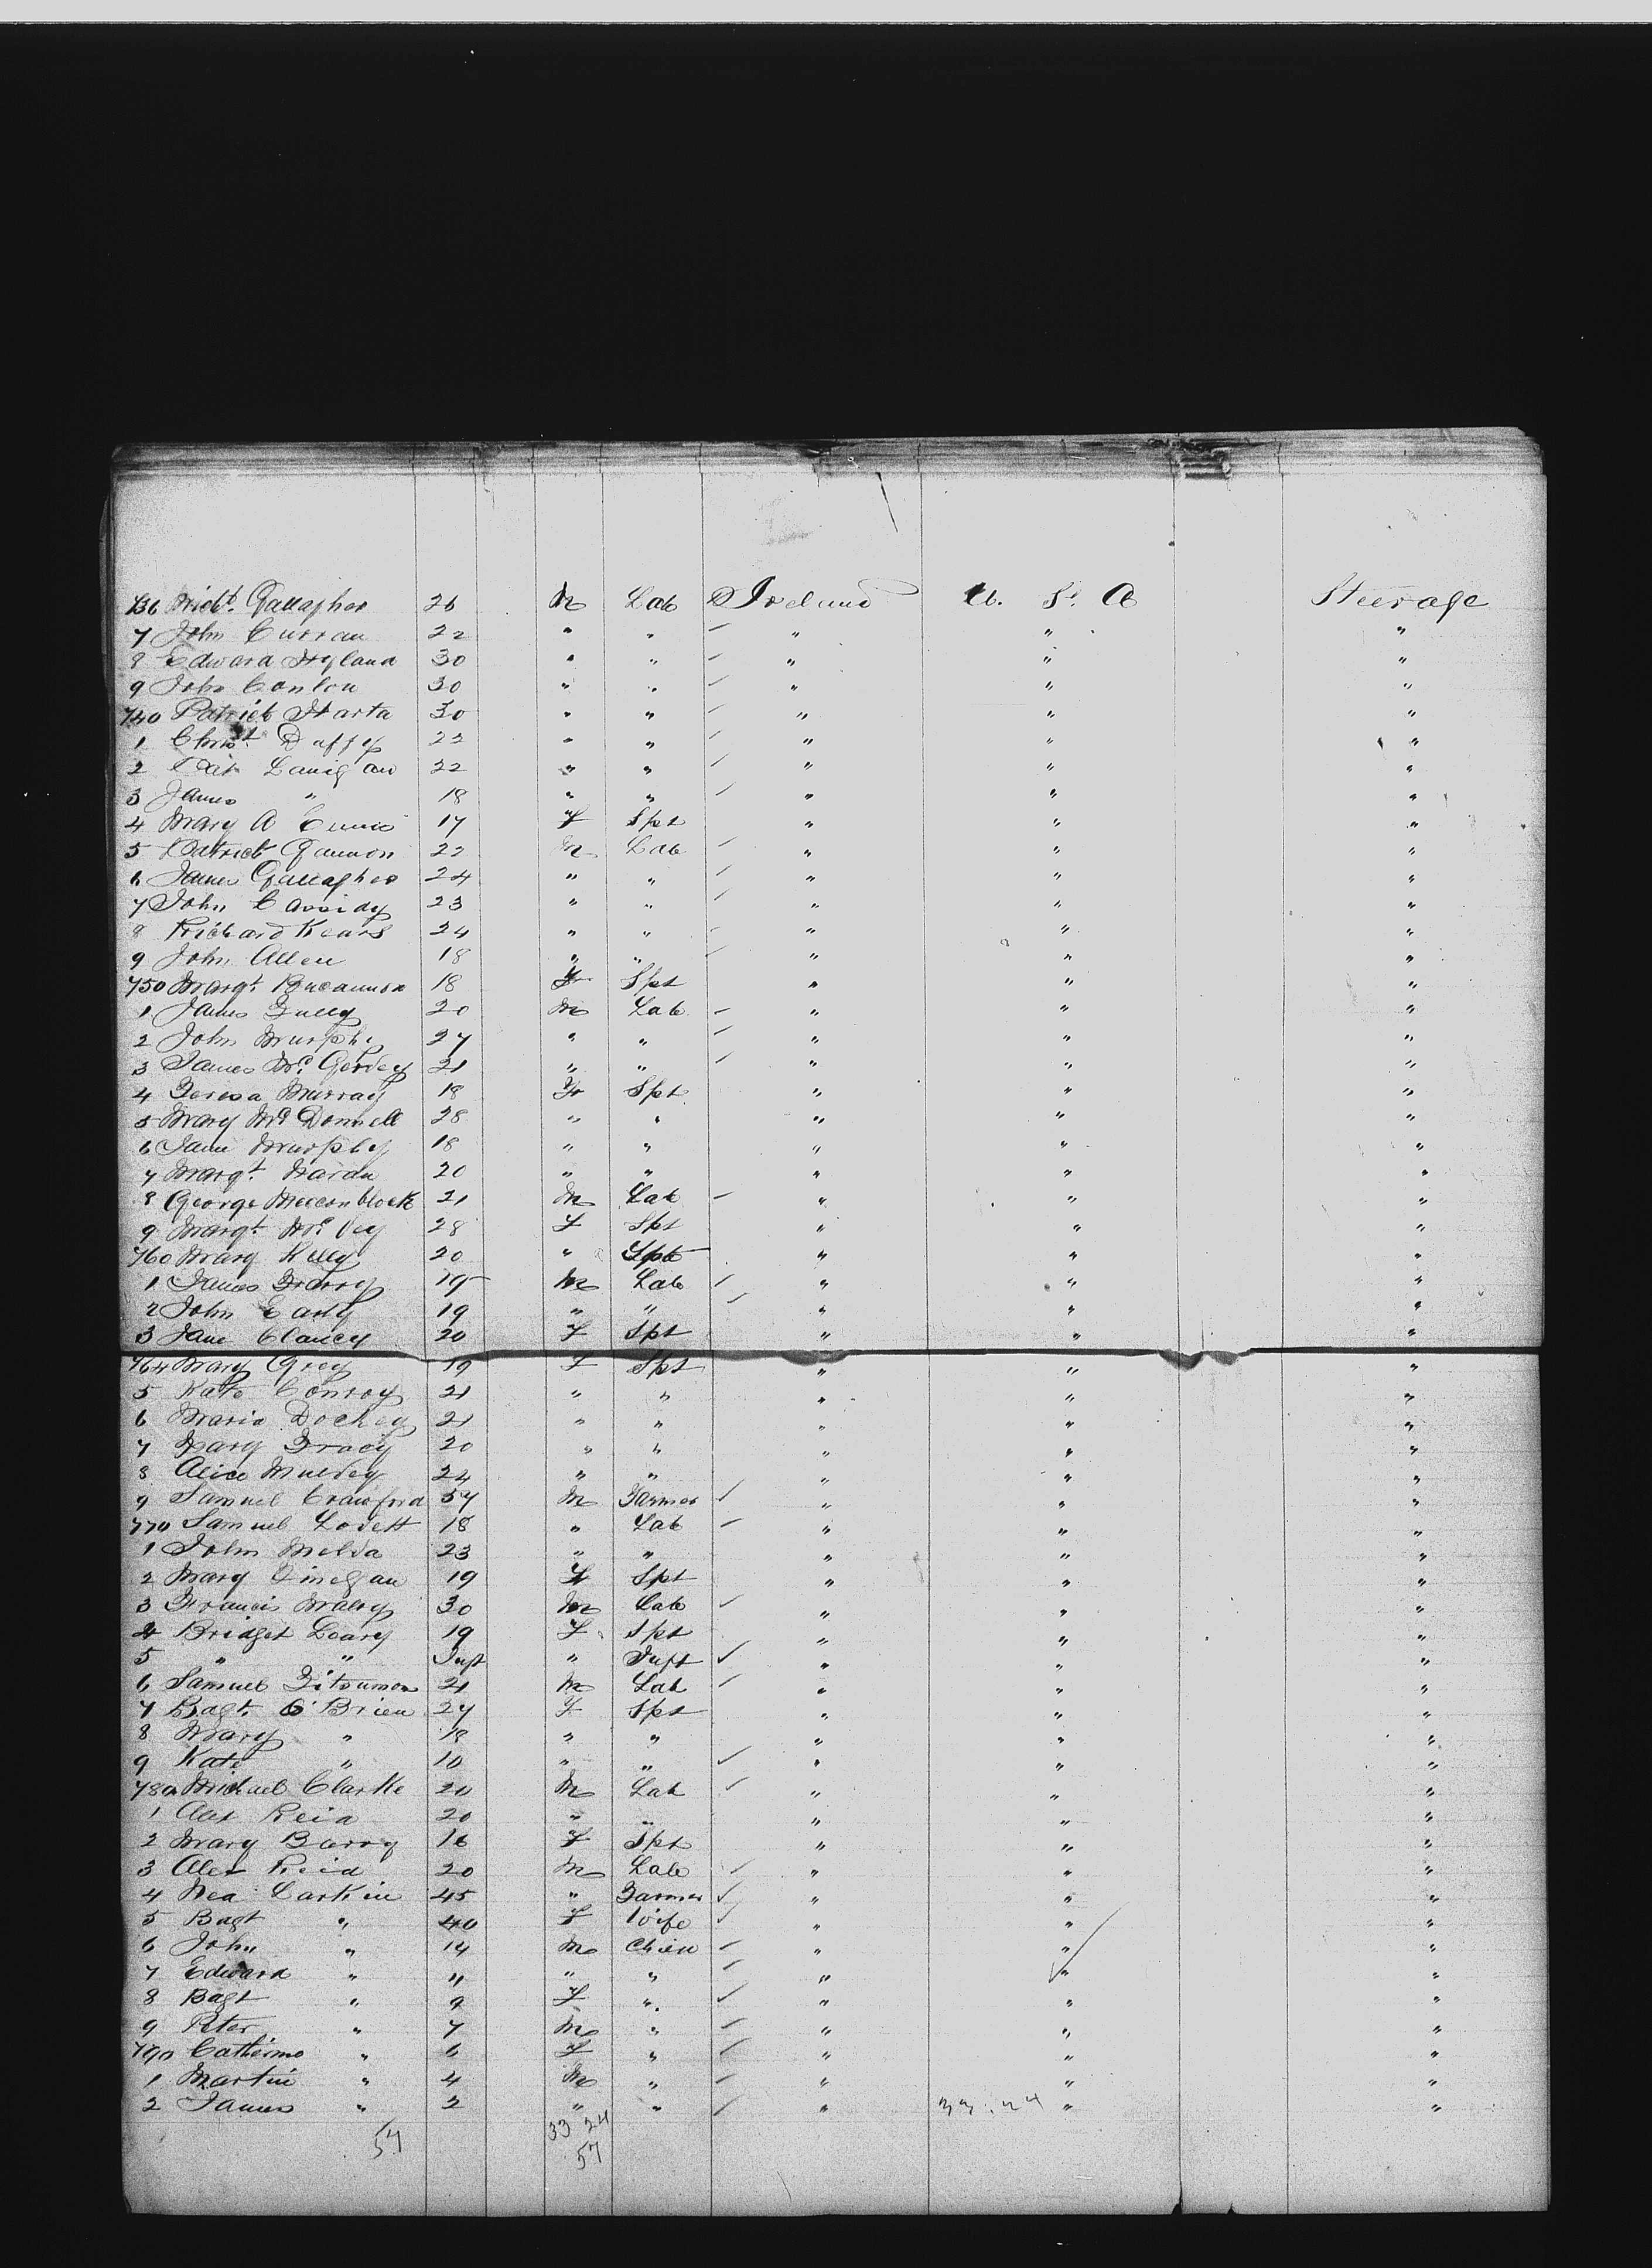 736 Michl. Gallagher 26 M Lab Ireland U. S. A Steerage
7 John Curran 22 " " " " "
8 Edward Hyland 30 " " " " "
9 John Conlon 30 " " " " "
740 Patrick Harta 30 " " " " "
1 Christ Duffy 22 " " " " "
2 Pat Lanigan 22 " " " " "
3 James " 18 " " " " "
4 Mary A Ennis 17 F Spt " " "
5 Patrick Gannon 22 M Lab " " "
6 James Gallagher 24 " " " " "
7 John Cassidy 23 " " " " "
8 Richard Kears 24 " " " " "
9 John Allen 18 " " " " "
750 Margt. Bucannon 18 F Spt " " "
1 James Tully 20 M Lab " " "
2 John Murphy 27 " " " " "
3 James Mc. 21 " " " " "
4 Teresa Murray 18 F Spt " " "
5 Mary Mc Donnell 28 " " " " "
6 Jane Murphy 18 " " " " "
7 Margt. 20 " " " " "
8 George 21 M Lab " " "
9 Margt. Mc. Vey 28 F Spt " " "
760 Mary Kelly 20 " Spt " " "
1 James 19 M Lab " " "
2 John Early 19 " " " " "
3 Jane Clancy 20 F Spt " " "
764 Mary Grey 19 F Spt " " "
5 Kate Conroy 21 " " " " "
6 Maria Dockey 21 " " " " "
7 Mary Tracy 20 " " " " "
8 Alice Mulvey 24 " " " " "
9 Samuel Crawford 57 M Farmer " " "
770 Samuel Lovett 18 " Lab " " "
1 John Melva 23 " " " " "
2 Mary Finegan 19 F Spt " " "
3 Francis Maley 30 M Lab " " "
4 Bridget Leary 19 F Spt " " "
5 " " Inft " Inft " " "
6 Samuel Fitsumon 21 M Lab " " "
7 Bagt. O'Brien 27 F Spt " " "
8 Mary " 18 " " " " "
9 Kate " 10 " " " " "
780 Michael Clarke 20 M Lab " " "
1 Alex Reid 20 " " " " "
2 Mary Barry 16 F Spt " " "
3 Alex Reid 20 M Lab " " "
4 Larkin 45 " Farmer " " "
5 Bagt " 40 F Wife " " "
6 John " 14 M Chien " " "
7 Edward " 11 " " " " "
8 Bagt " 9 F " " " "
9 Peter " 7 M " " " "
790 Catherine " 6 F " " " "
1 Martin " 4 M " " " "
2 James " 2 " " " 33.24 " "
57 33 24
57